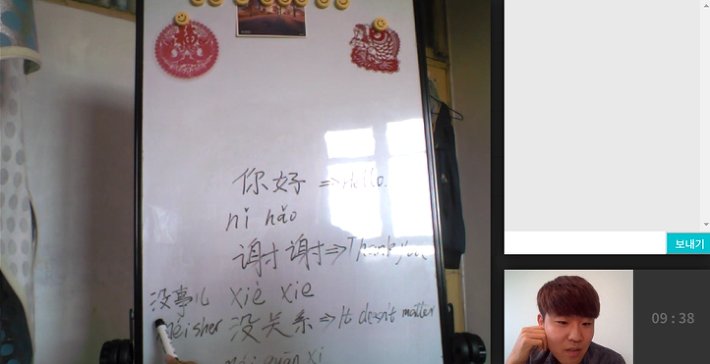 你好 ⇒ Hello.
nǐ hǎo
谢谢 ⇒ Thank you
xiè xie
没事儿
méisher
没关系 ⇒ It doesn't matter
méi guān xi
보내기
09:38